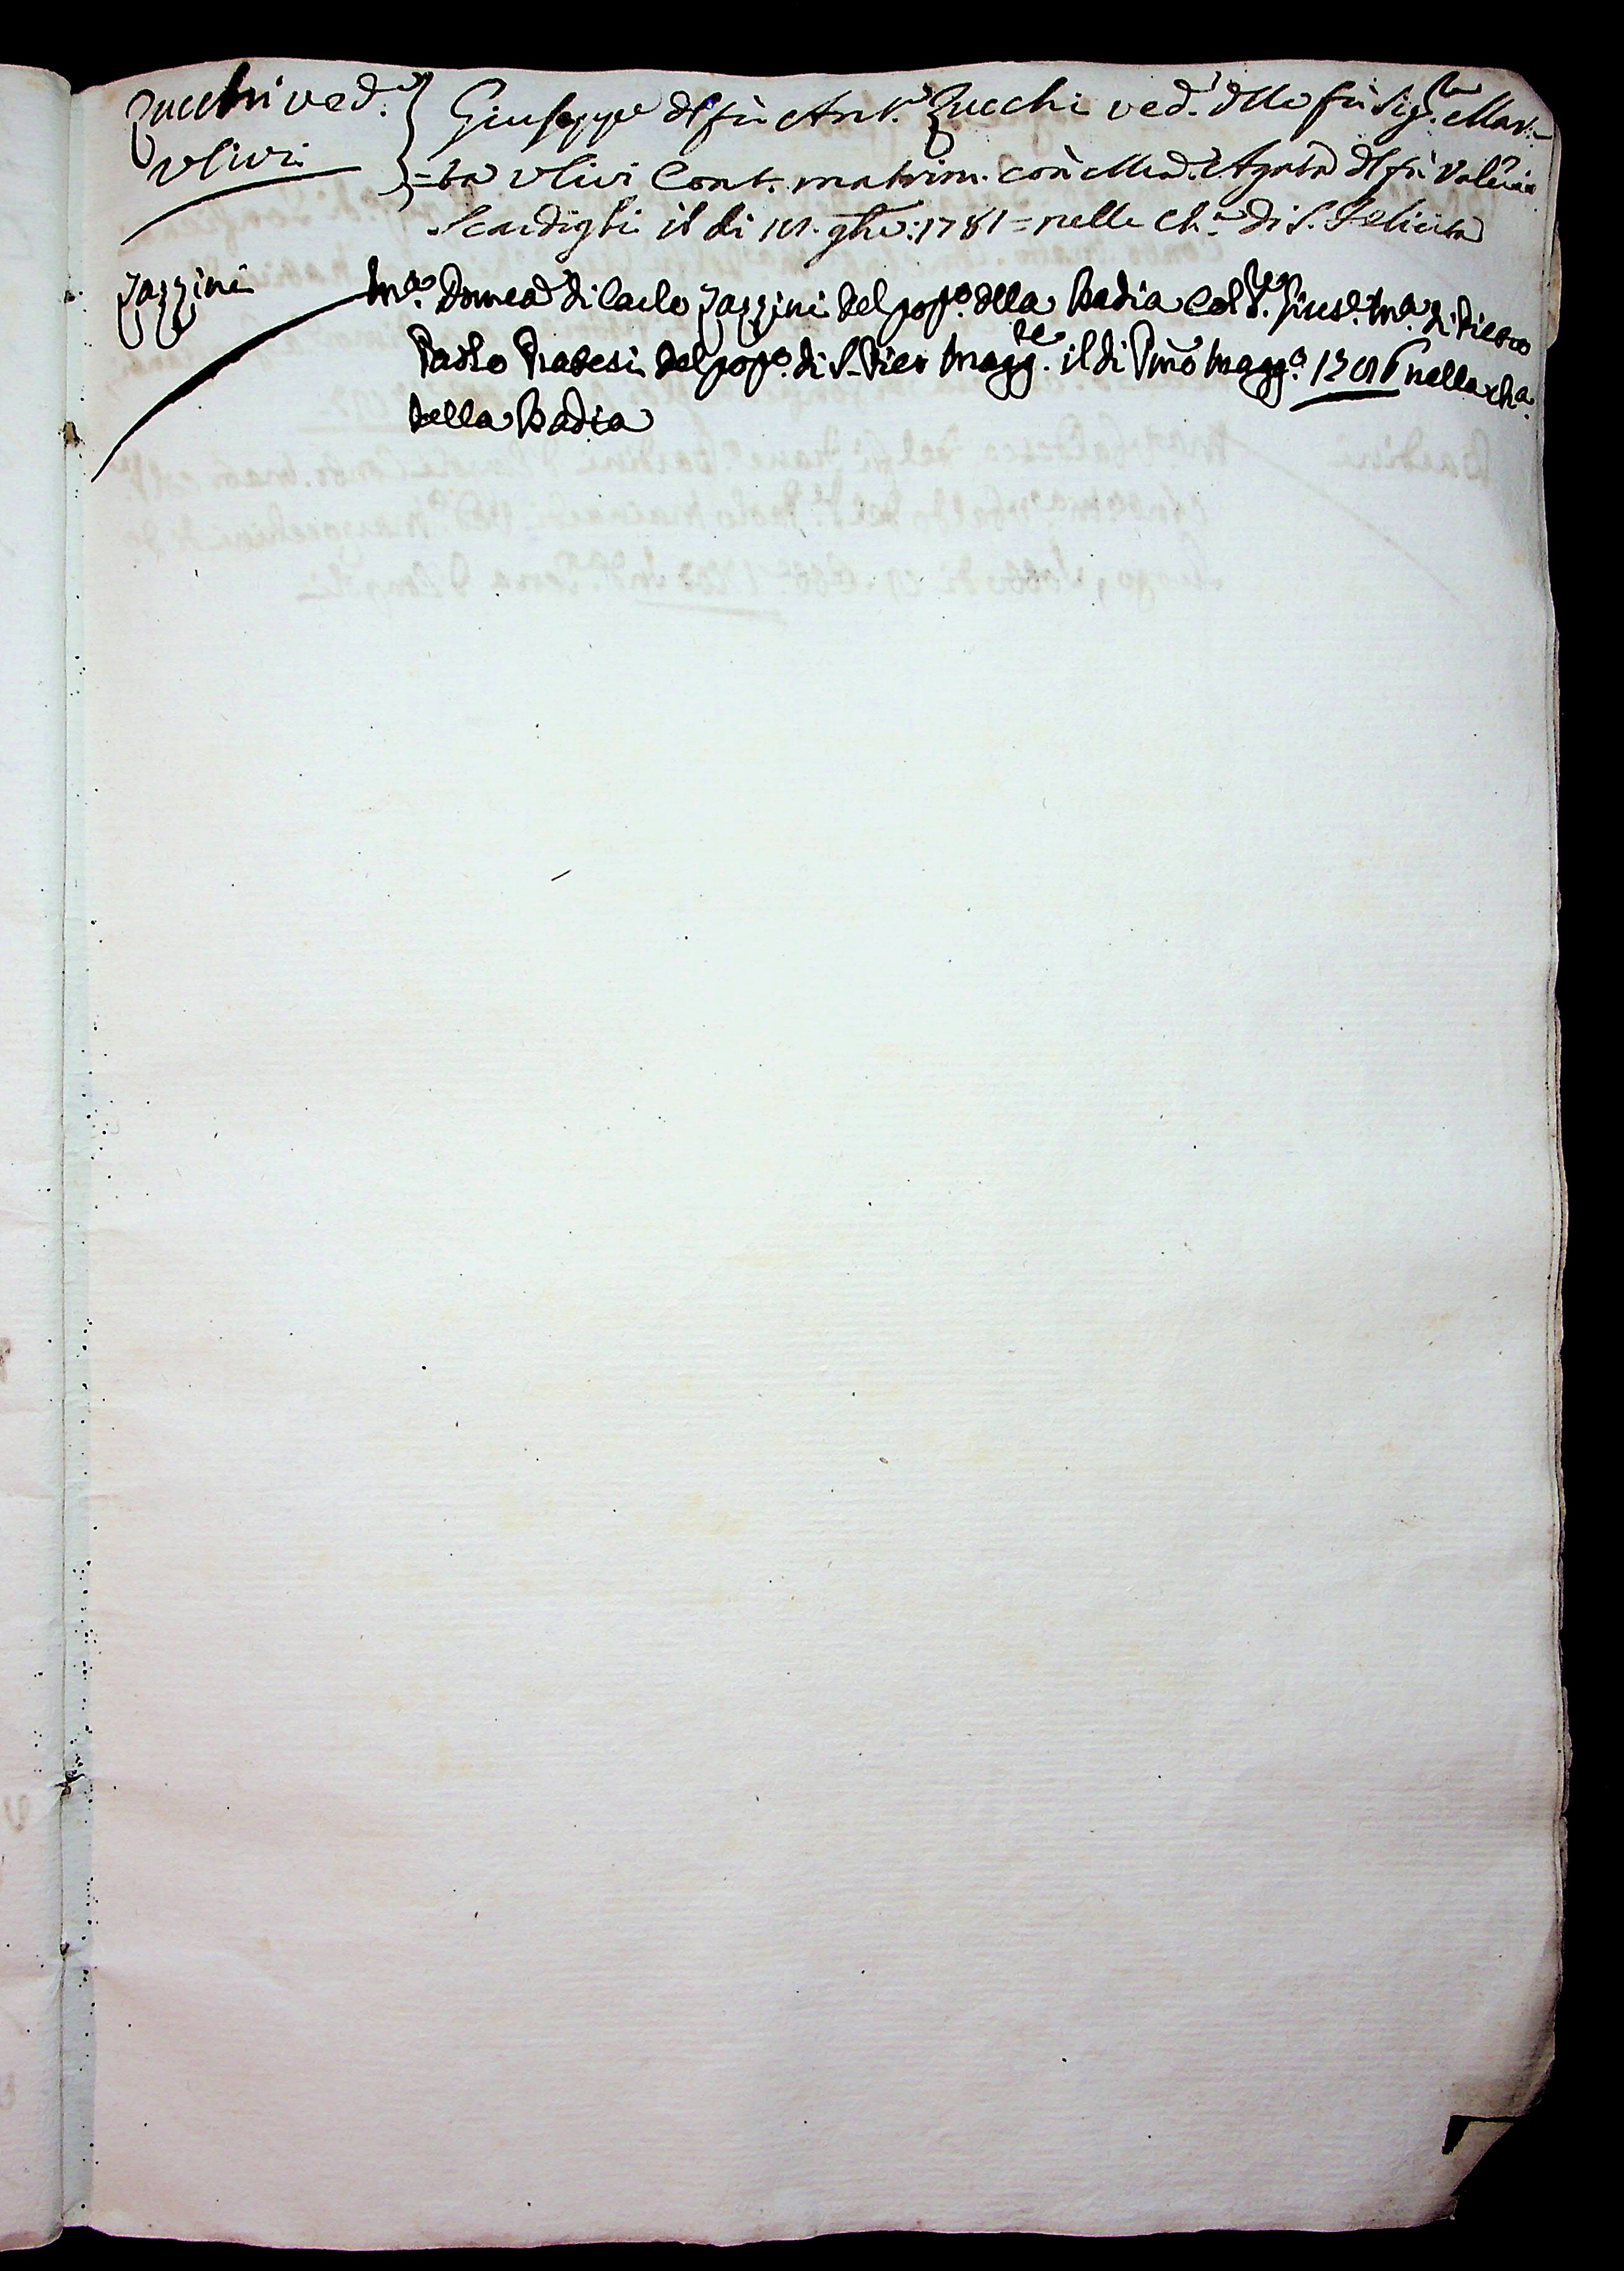 Zucchi ved.º
Ulivi
Giuseppe d'l fù Ant.º Zucchi ved.º d'lla fù Sig.ra Mar-
=ta Ulivi Cont. matrim. con Mad.ª Agata d'l fù Valerio
Scardigli il di 19. 9bre: 1781 = nella Ch.ª di S. Felicita
Zazzini
M.ª Dom.ca di Carlo Zazzini del pop.º della Badia col S.r Gius.e M.ª di Pietro
Paolo Pratesi del pop.º di S. Pier Magg.re il di Pmo Magg.º 1796 nella cha.
della Badia